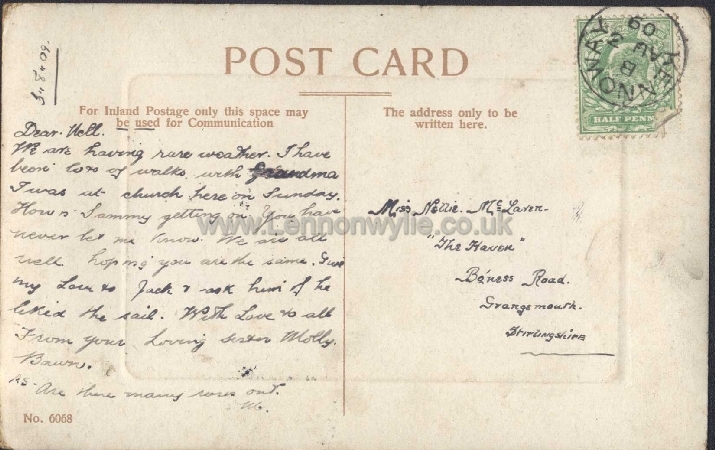 POST CARD
3.8.09.
For Inland Postage only this space may
be used for Communication
The address only to be
written here.
HALF PENN
KENNOWAY
B
AU 2
09
Dear Nell.
We are having rare weather. I have
been lots of walks with Grandma
I was at church here on Sunday.
How is Sammy getting on you have
never let me know. We are all
well hoping you are the same. Give
my love to Jack & ask him if he
liked the sail. With Love to all
From your loving sister Molly
Bawn.
P.S. Are there many roses out.
M.
Miss Nellie Mc Laren
"The Haven"
Bo'ness Road.
Grangemouth.
Stirlingshire
No. 6068
www.Lennonwylie.co.uk